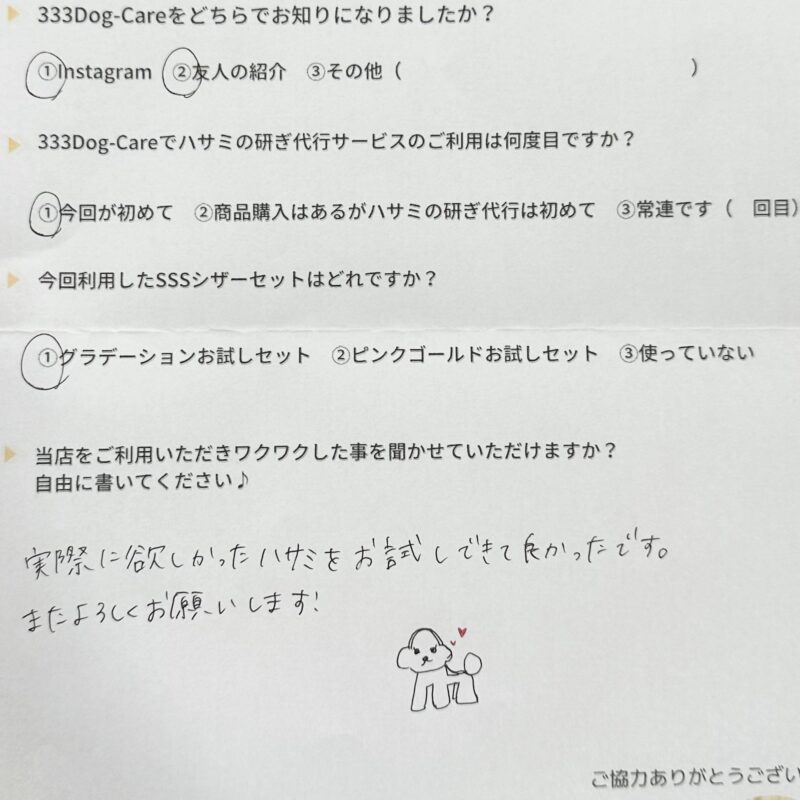 333Dog-Careをどちらでお知りになりましたか？
①Instagram ②友人の紹介 ③その他（ ）
333Dog-Careでハサミの研ぎ代行サービスのご利用は何度目ですか？
①今回が初めて ②商品購入はあるがハサミの研ぎ代行は初めて ③常連です（ 回目）
今回利用したSSSシザーセットはどれですか？
①グラデーションお試しセット ②ピンクゴールドお試しセット ③使っていない
当店をご利用いただきワクワクした事を聞かせていただけますか？
自由に書いてください♪
実際に欲しかったハサミをお試しできて良かったです。
またよろしくお願いします!
ご協力ありがとうござい